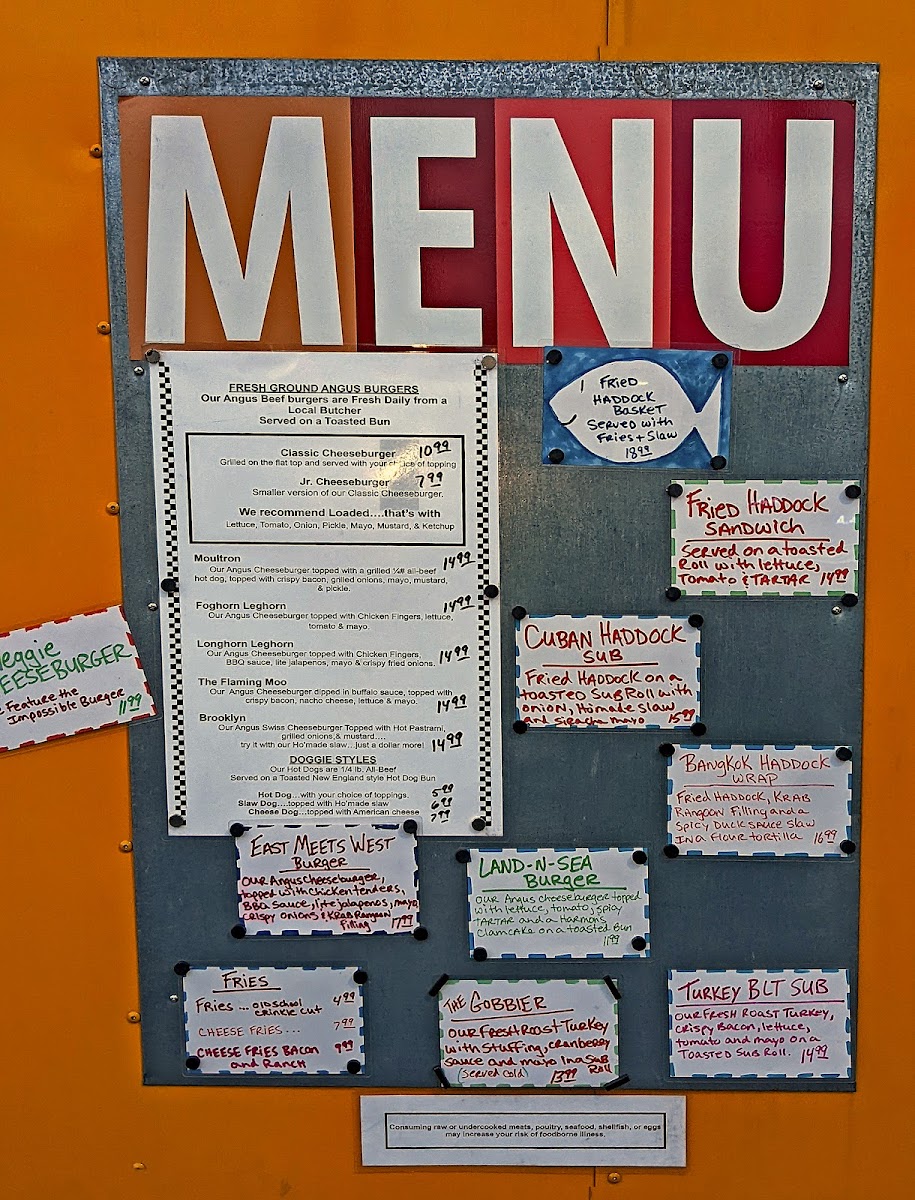 MENU
FRESH GROUND ANGUS BURGERS
Our Angus Beef burgers are Fresh Daily from a
Local Butcher
Served on a Toasted Bun
Classic Cheeseburger 10.99
Grilled on the flat top and served with your choice of topping
Jr. Cheeseburger 7.99
Smaller version of our Classic Cheeseburger.
We recommend Loaded....that's with
Lettuce, Tomato, Onion, Pickle, Mayo, Mustard, & Ketchup
Moultron 14.99
Our Angus Cheeseburger topped with a grilled ¼# all-beef
hot dog, topped with crispy bacon, grilled onions, mayo, mustard,
& pickle.
Foghorn Leghorn 14.99
Our Angus Cheeseburger topped with Chicken Fingers, lettuce,
tomato & mayo.
Longhorn Leghorn
Our Angus Cheeseburger topped with Chicken Fingers,
BBQ sauce, lite jalapenos, mayo & crispy fried onions. 14.99
The Flaming Moo
Our Angus Cheeseburger dipped in buffalo sauce, topped with
crispy bacon, nacho cheese, lettuce & mayo. 14.99
Brooklyn
Our Angus Swiss Cheeseburger Topped with Hot Pastrami,
grilled onions,& mustard....
try it with our Ho'made slaw...just a dollar more! 14.99
DOGGIE STYLES
Our Hot Dogs are 1/4 lb. All-Beef
Served on a Toasted New England style Hot Dog Bun
Hot Dog...with your choice of toppings. 5.99
Slaw Dog....topped with Ho'made slaw 6.99
Cheese Dog...topped with American cheese 7.99
FRIED
HADDOCK
BASKET
SERVED WITH
FRIES + SLAW
18.99
FRIED HADDOCK
SANDWICH
SERVED on a toasted
Roll with lettuce,
Tomato & TARTAR 14.99
CUBAN HADDOCK
SUB
FRIED HADDOCK on a
toasted SUB Roll with
onion, Homade slaw
and siracha mayo 15.99
BANGKOK HADDOCK
WRAP
FRIED HADDOCK, KRAB
Rangoon Filling and a
Spicy Duck sauce slaw
In a Flour tortilla 16.99
Veggie
CHEESEBURGER
Feature the
Impossible Burger
11.99
EAST MEETS WEST
BURGER
OUR Angus cheeseburger,
topped with chicken tenders,
BBQ sauce, lite jalapenos, mayo,
crispy onions & Krab Rangoon
Filling 17.99
LAND-N-SEA
BURGER
OUR Angus cheeseburger topped
with lettuce, tomato, spicy
TARTAR and a Harmons
Clamcake on a toasted Bun
FRIES
FRIES ... old school
crinkle cut 4.99
CHEESE FRIES... 7.99
CHEESE FRIES BACON
and RANCH 9.99
THE GOBBLER
OUR FRESH ROAST TURKEY
with STUFFING, cranberry
sauce and mayo In a SUB
Roll
(served cold) 13.99
TURKEY BLT SUB
OUR FRESH ROAST TURKEY,
crispy Bacon, lettuce,
tomato and mayo on a
Toasted SUB Roll. 14.99
Consuming raw or undercooked meats, poultry, seafood, shellfish, or eggs
may increase your risk of foodborne illness.